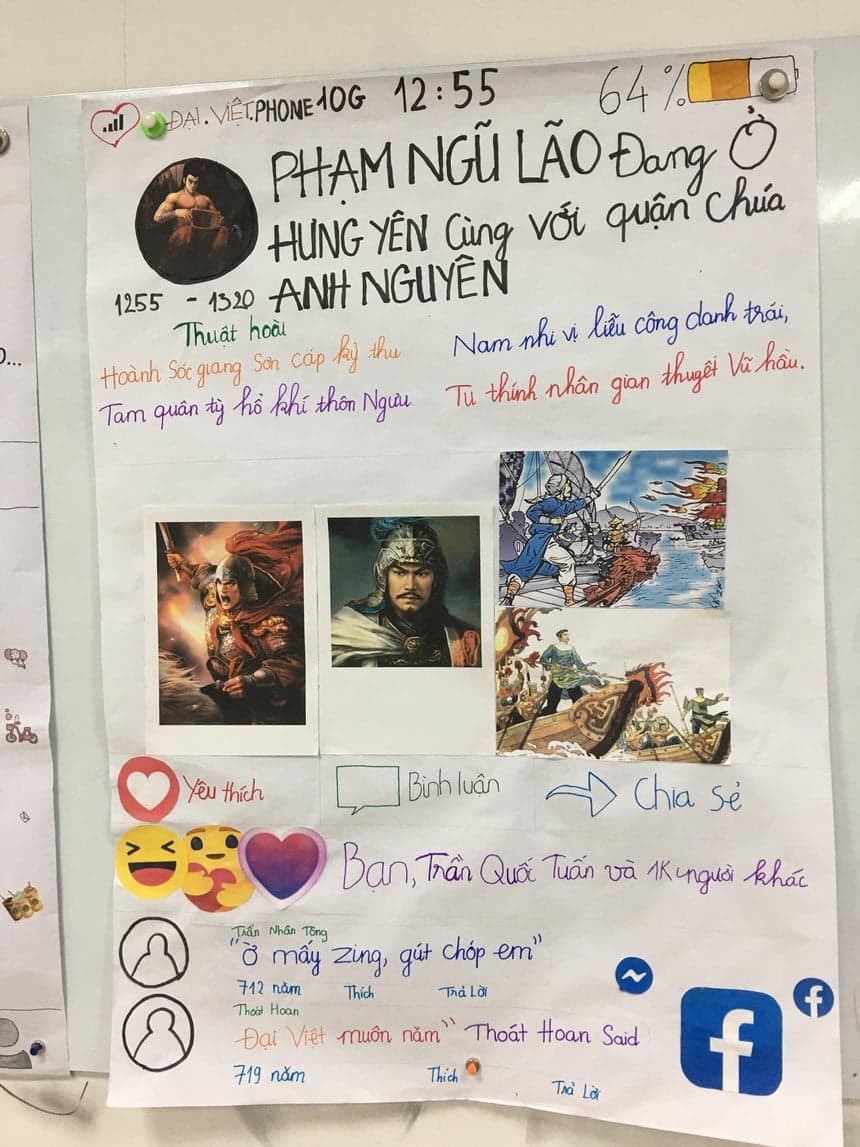 ĐẠI.VIỆT.PHONE 10G 12:55 64%
PHẠM NGŨ LÃO Đang Ở
HƯNG YÊN Cùng với quận chúa
ANH NGUYÊN
1255 - 1320
Thuật hoài
Hoành Sóc giang Sơn cáp kỷ thu
Tam quân tỳ hổ khí thôn Ngưu
Nam nhi vị liễu công danh trái,
Tu thính nhân gian thuyết Vũ hầu.
Yêu thích Bình luận Chia sẻ
Bạn, Trần Quốc Tuấn và 1K người khác
Trần Nhân Tông
"Ờ mấy zing, gút chóp em"
712 năm Thích Trả Lời
Thoát Hoan
Đại Việt muôn năm" Thoát Hoan Said
719 năm Thích Trả Lời